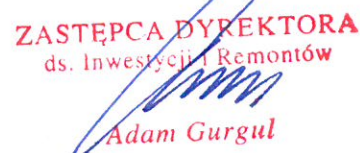 ZASTĘPCA DYREKTORA
ds. Inwestycji i Remontów
Adam Gurgul